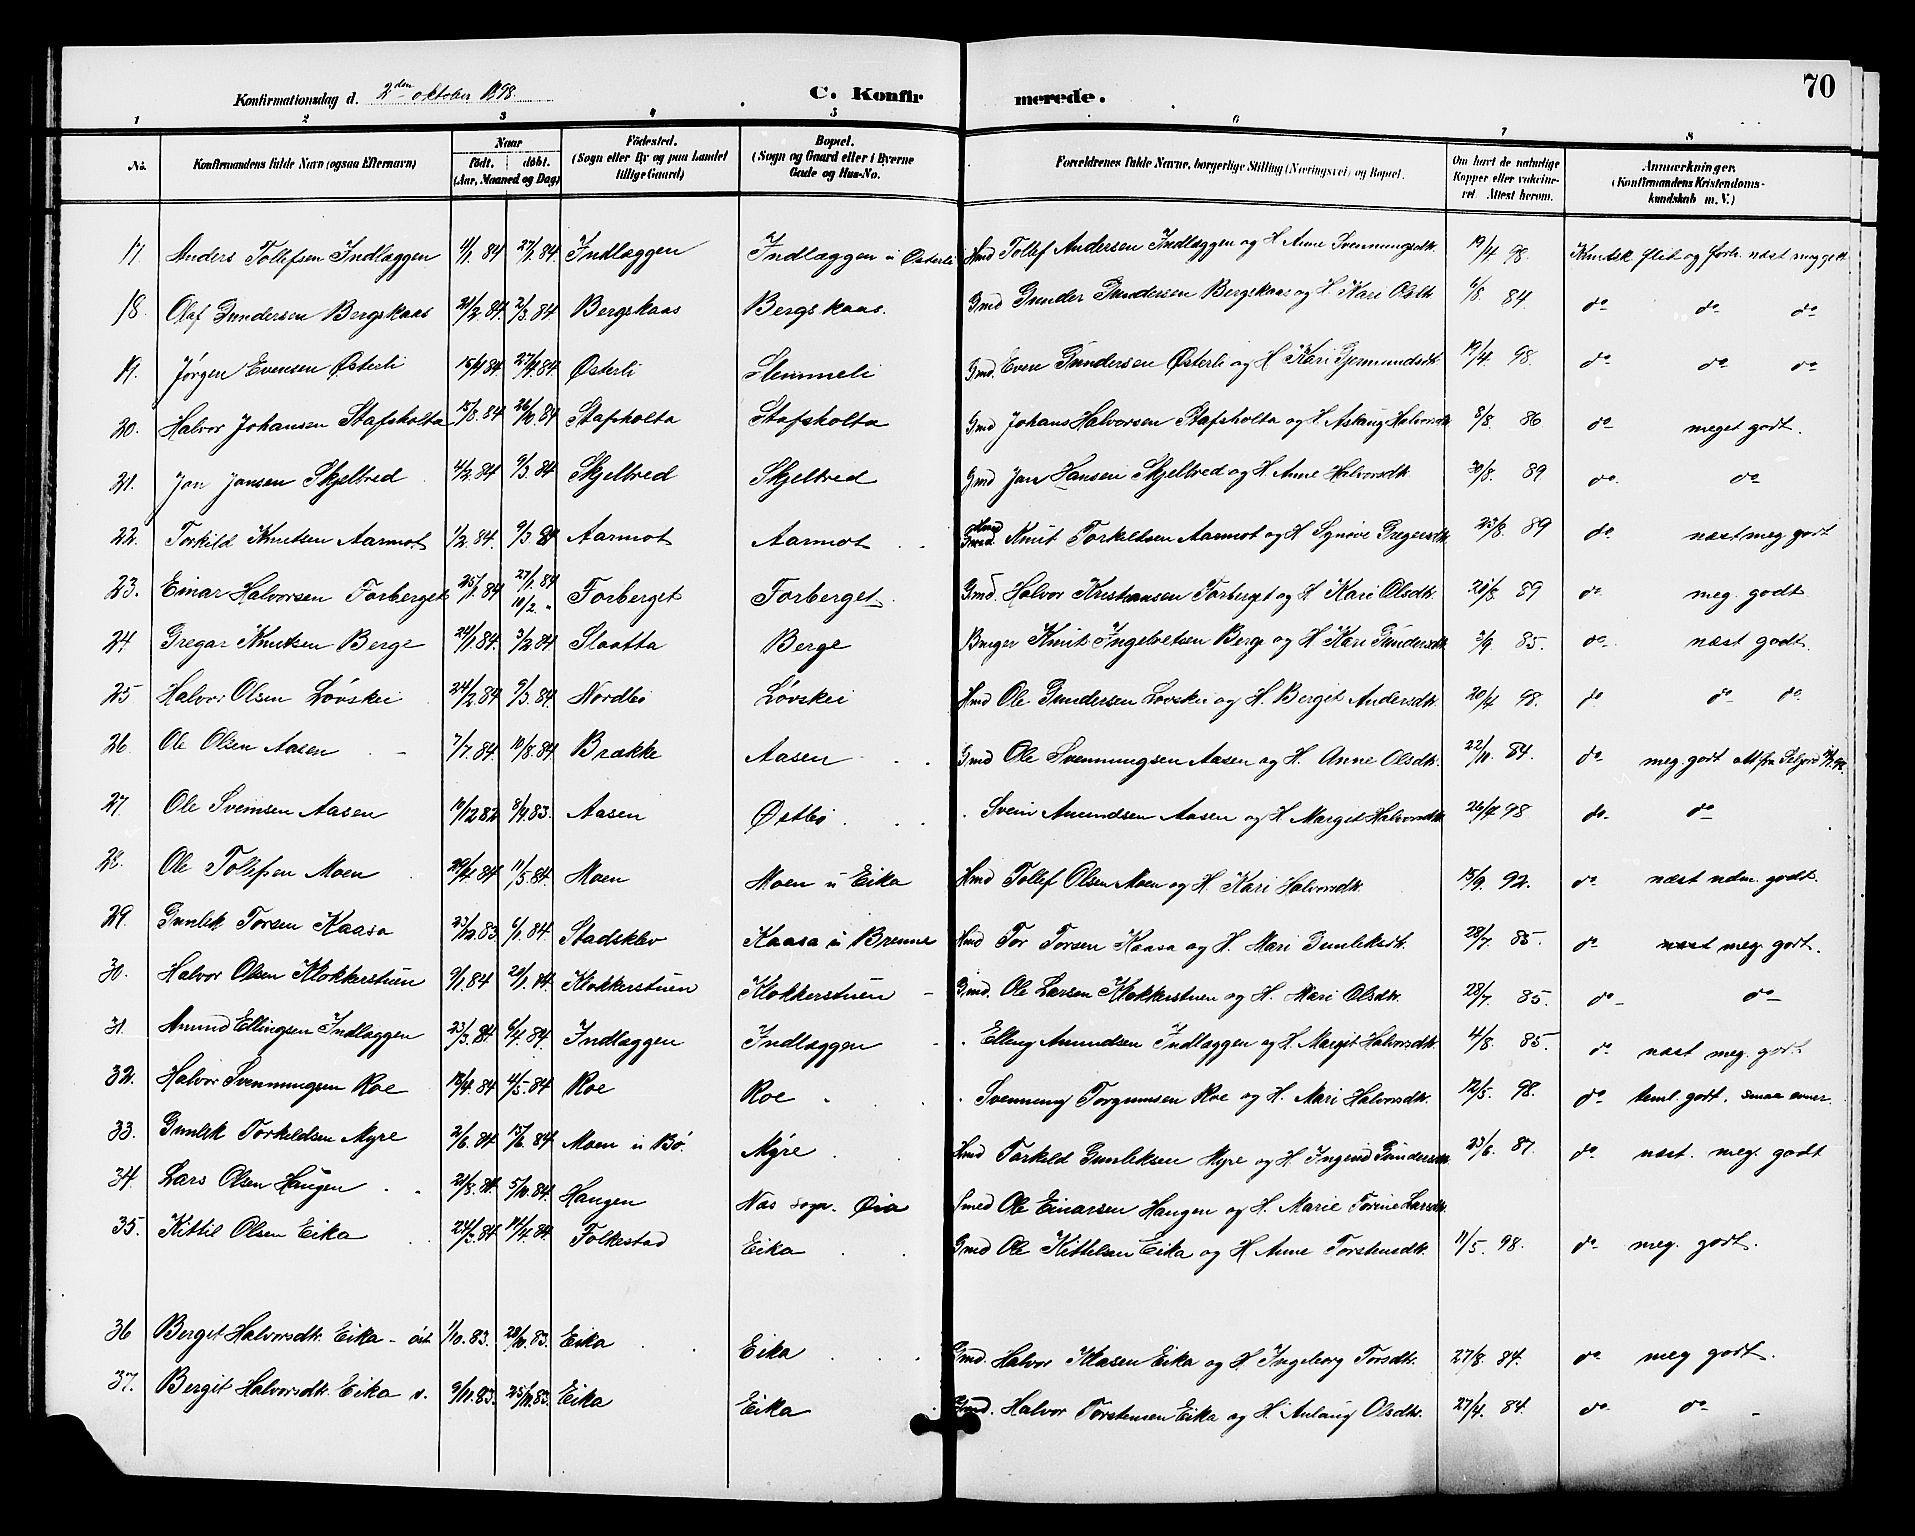 70
Konfirmationsdag d. 2den oktober 1898. C. Konfirmerede.
1 2 3 4 5 6 7 8
No. Konfirmandens fulde Navn (ogsaa Efternavn) Naar født. døbt. (Aar, Maaned og Dag) Fødested. (Sogn eller By og paa Landet tillige Gaard) Bopæl. (Sogn og Gaard eller i Byerne Gade og Hus-No. Forældrenes fulde Navne, borgerlige Stilling (Næringsvei) og Bopæl. Om havt de naturlige Kopper eller vakcineret Attest herom. Anmærkninger. (Konfirmandens Kristendomskundskab m. V.)
17. Anders Tollefsen Indlæggen 1/1 84 27/1 84. Indlæggen Indlæggen u Østerli Hmd Tollef Andersen Indlæggen og H. Anne Svenningsdtr. 19/4 98. Kundsk. flid og forh. næst meg godt
18. Olaf Gundersen Bergskaas 21/2. 84. 2/3. 84 Bergskaas Bergskaas. Gmd Gunder Gundersen Bergskaas og H. Kari Olsdtr 6/8. 84. do do do
19. Jørgen Evensen Østerli 15/4 84 27/4. 84. Østerli Stemmeli Gmd. Even Gundersen Østerli og H. Kari Gjermundsdtr. 19/4. 98. do do do
20. Halvor Johansen Stafsholta 15/8. 84 26/10. 84 Stafsholta Stafsholta Gmd Johans Halvorsen Stafsholta og H. Aslaug Halvorsdtr 8/8. 86 do meget godt.
21. Jan Jansen Skjelbred 4/2. 84 9/3. 84 Skjelbred Skjelbred Gmd Jan Hansen Skjelbred og H. Anne Halvorsdtr. 30/8. 89 do. do
22. Torkild Knutsen Aarmot 1/2. 84. 9/3. 84 Aarmot Aarmot Hmd Knut Torkildsen Aarmot og H. Synøve Gregersdtr 23/8. 89 do næst meg. godt
23. Einar Halvorsen Forberget 25/1. 84 27/1. 84 10/2. " Forberget Forberget Gmd. Halvor Kristiansen Forberget og H. Kari Olsdtr. 28/8. 89 do meg. godt
24. Gregar Knutsen Berge 24/1. 84. 3/2. 84 Slaatta Berge Bruger Knut Ingebretsen Berge og H. Kari Gundersdtr 2/9. 85. do næst godt.
25 Halvor Olsen Løvskei 24/2. 84 9/3. 84. Nordbø Løvskei Hmd Ole Gundersen Løvskei og H. Berget Andersdtr. 20/4 98. do do do.
26. Ole Olsen Aasen 7/7. 84. 10/8. 84 Brække Aasen Gmd Ole Svenningsen Aasen og H. Anne Olsdtr. 22/11. 84. do meg. godt att fra Seljord
27. Ole Sveinsen Aasen 10/12 82 8/4. 83. Aasen Østbø Svein Amundsen Aasen og H. Margit Halvorsdtr. 26/4 98 do. do
28. Ole Tollefsen Moen 29/4. 84 11/5. 84. Moen Moen u Eika Hmd Tollef Olsen Moen og H. Kari Halvorsdtr. 15/9. 92. do næst udm. godt.
29. Gunlek Torsen Kaasa 23/12. 83. 6/1. 84. Stadsklev Kaasa u Brenne Hmd Tor Torsen Kaasa og H. Mari Gunleksdtr. 28/7. 85. do meg. godt.
30. Halvor Olsen Klokkerstuen 9/1. 84 20/1. 84. Klokkerstuen Klokkerstuen Gmd. Ole Larsen Klokkerstuen og H. Mari Olsdtr. 28/7. 85. do do
31. Amund Ellingsen Indlæggen 23/3. 84 6/4. 84. Indlæggen Indlæggen Elling Amundsen Indlæggen og H. Margit Halvorsdtr. 4/8. 85. do næst meg. godt
32. Halvor Svenningsen Roe 13/4. 84 4/5. 84 Roe Roe Svenning Torgrimsen Roe og H. Mari Halvorsdtr. 12/5. 98. do teml. godt. smaa evner.
33. Gunlek Torkildsen Myre 2/6. 84 15/6. 84 Moen u Bø. Myre Hmd Torkild Gunleksen Myre og H. Ingerid Gundersdtr 23/6. 87. do næst. meg. godt
34. Lars Olsen Haugen 21/8. 84. 5/10. 84. Haugen Næs sogn. Øia Smed Ole Einarsen Haugen og H. Marie Torine Larsdtr.
35. Kittil Olsen Eika 24/3. 84 14/4. 84 Folkestad Eika Gmd Ole Kittelsen Eika og H. Anne Torstensdtr. 11/5. 98. do meg. godt.
36 Berget Halvorsdtr. Eika - øst 1/10. 83. 28/10. 83. Eika Eika Gmd. Halvor Klasen Eika og H. Ingeborg Torsdtr. 27/8. 84. do meg godt.
37. Bergit Halvorsdtr. Eika v. 9/11. 83. 25/11. 83. Eika Eika Gmd. Halvor Torstensen Eika og H. Anlaug Olsdtr. 27/4. 84. do do